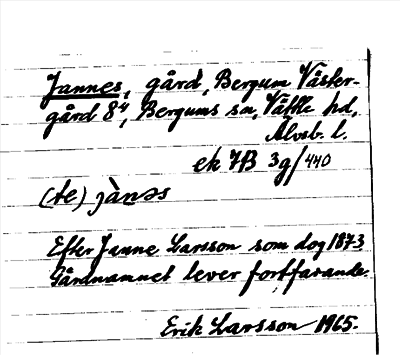 Jannes, gård, Bergum Väster-
gård 8⁴, Bergums sn, Vättle hd,
Älvsb. l.
ek 7B 3g/440
(te) jànəs
Efter Janne Larsson som dog 1873
Gårdnamnet lever fortfarande.
Erik Larsson 1965.